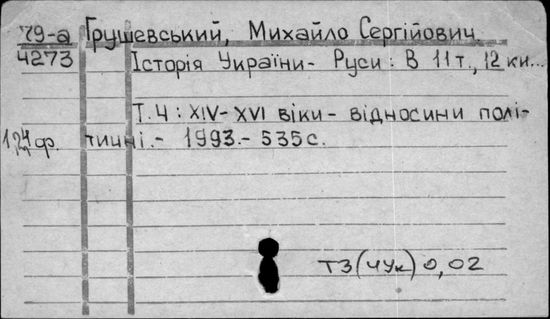 79-а Грушевський, Михайло Сергійович.
4273 Історія України-Руси: В 11 т., 12 кн...
Т.4: XIV-XVI віки - відносини полі-
1,24 ф. тичні.- 1993.- 535 с.
ТЗ(4Ук) 0,02